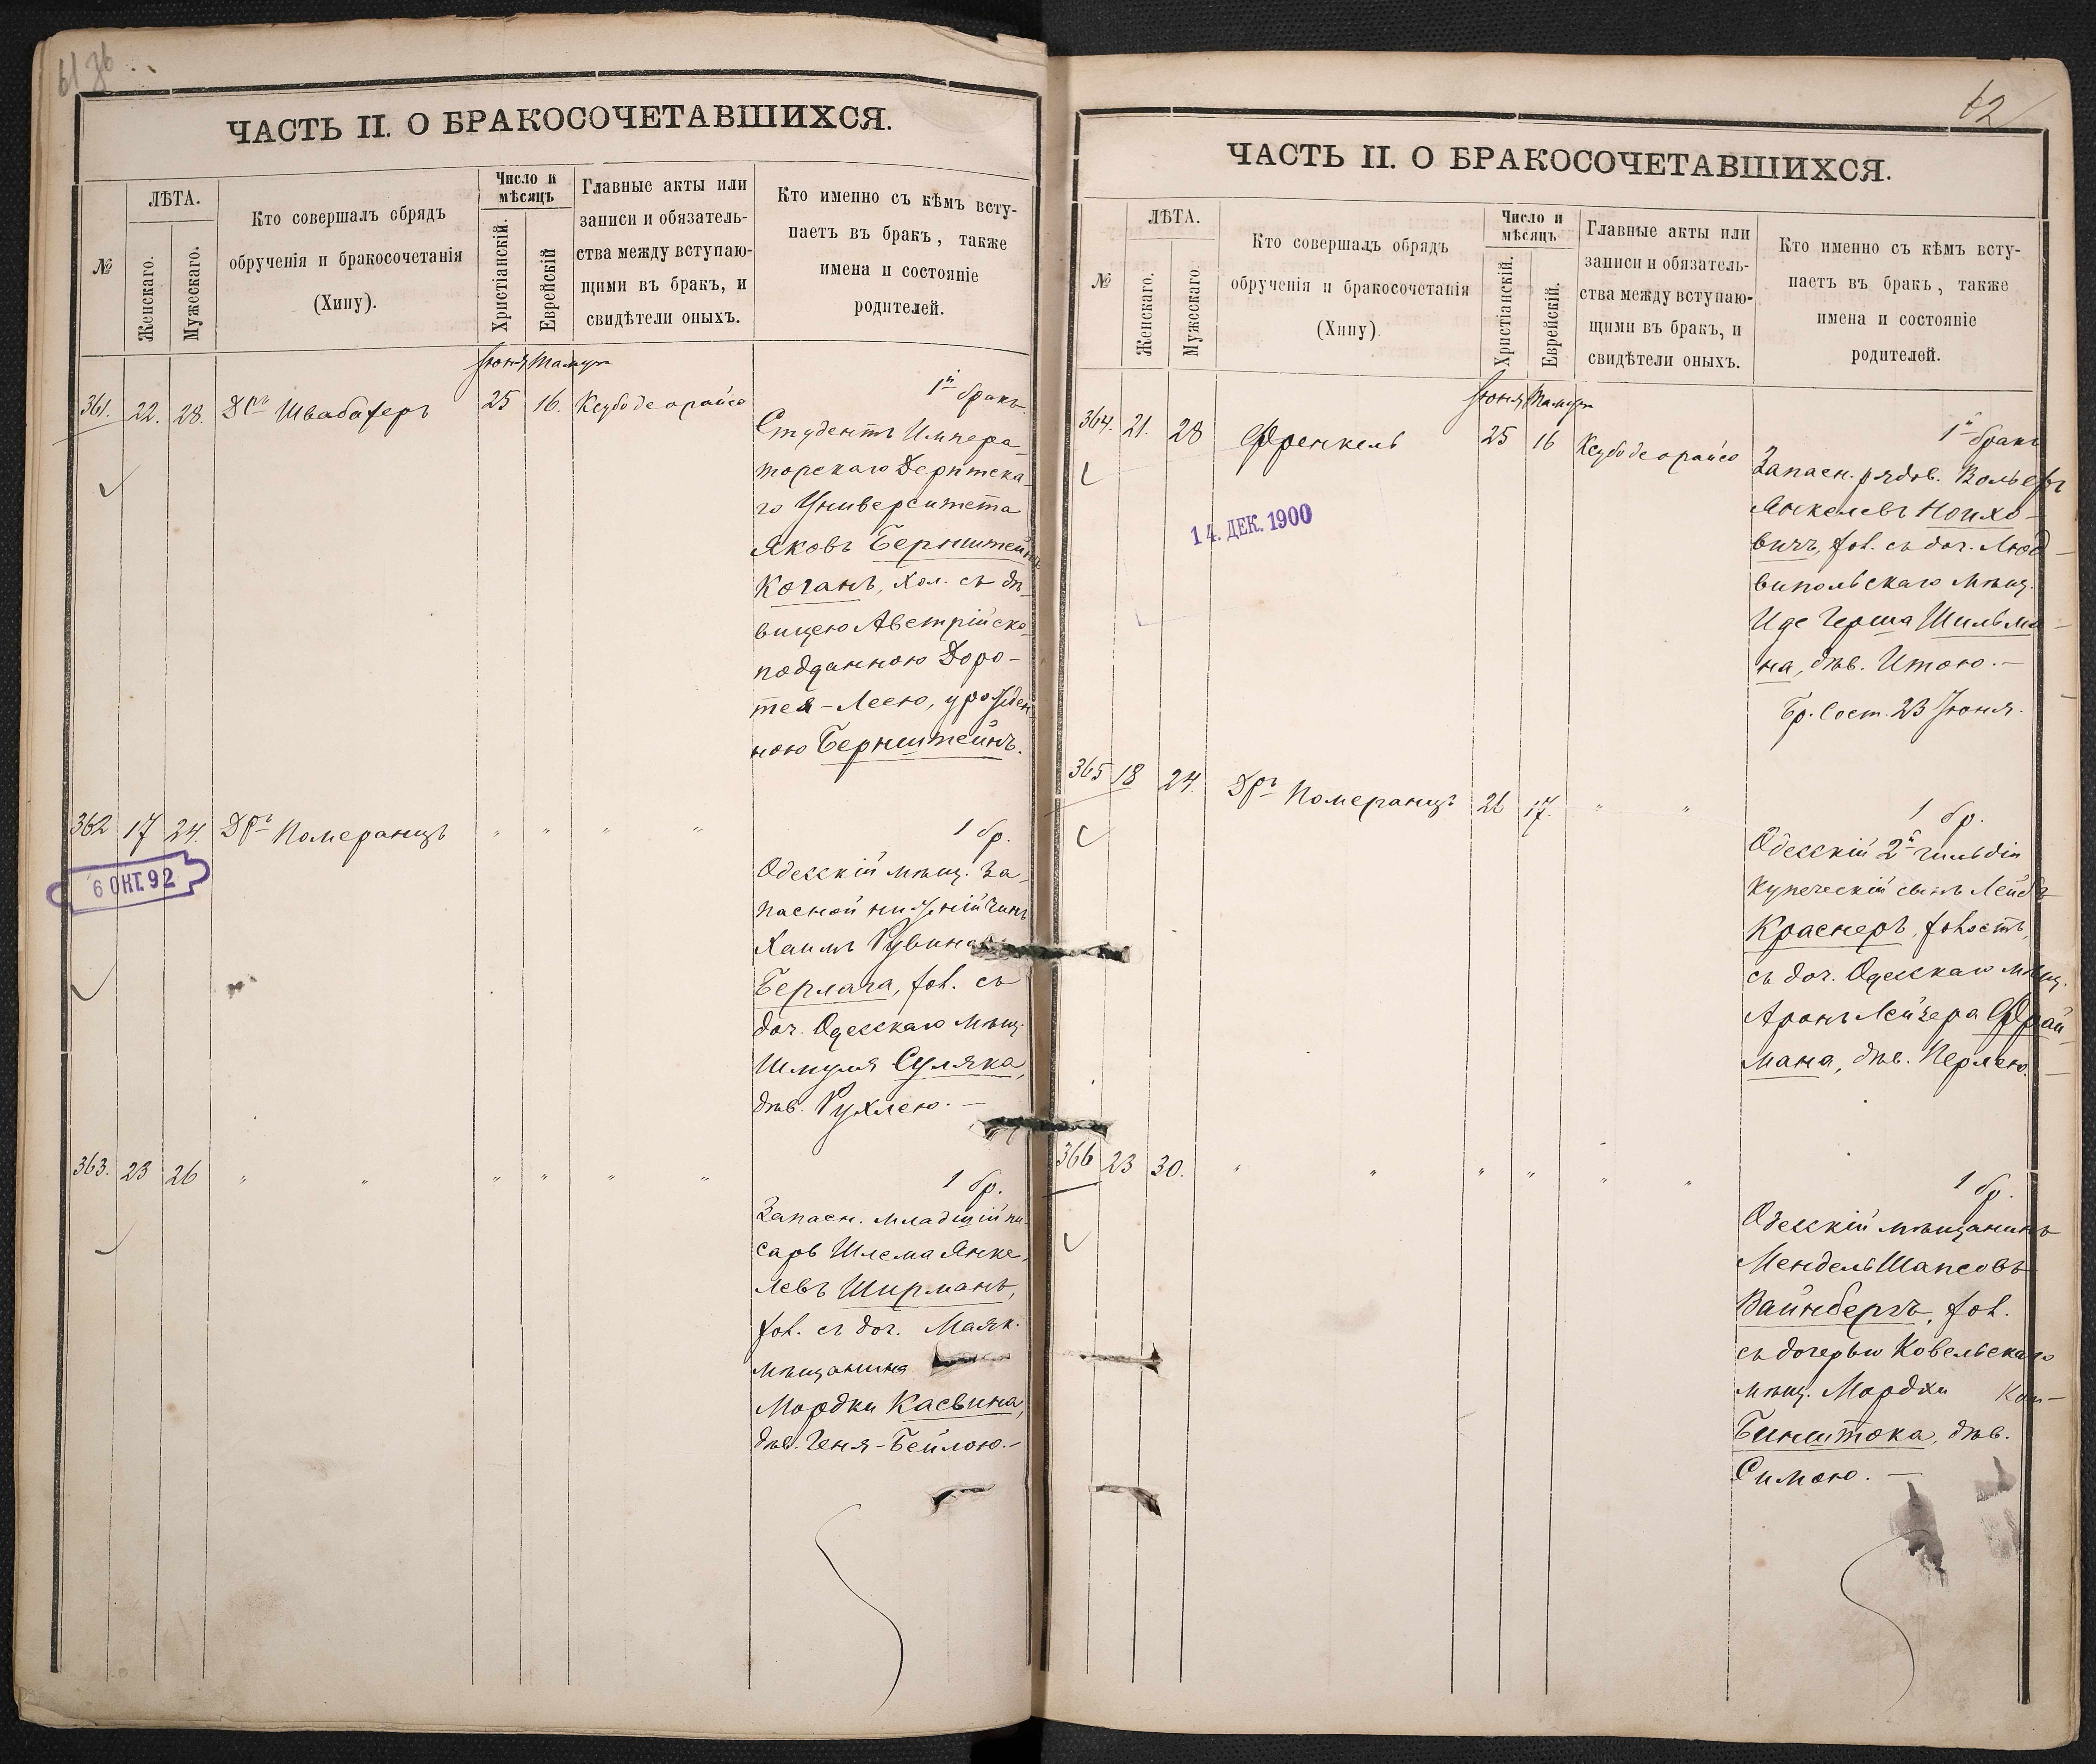 ЧАСТЬ II. О БРАКОСОЧЕТАВШИХСЯ.
№
ЛѢТА.
Женскаго.
Мужескаго.
Кто совершалъ обрядъ
обрученія и бракосочетанія
(Хипу).
Число и
мѣсяцъ
Христіанскій.
Еврейскій
Главные акты или
записи и обязатель-
ства между вступаю-
щими въ бракъ, и
свидѣтели оныхъ.
Кто именно съ кѣмъ всту-
паетъ въ бракъ, также
имена и состояніе
родителей.
Іюня Тамуз
361. 22. 28. Дръ Швабахеръ 25 16. Ксубо деорайсо
1й бракъ.
Студентъ Импера-
торскаго Дерптска-
го Университета
Яковъ Бернштейнъ
Коганъ, хол. съ дѣ-
вицею Австрійско-
подданною Доро-
тея-Леею, урожден-
ною Бернштейнъ.
362 17 24. Дръ Померанцъ " " " "
1 бр.
Одесскій мѣщ. За-
пасной нижній чинъ
Хаимъ Рувинъ
Берлага, хол. съ
доч. Одесскаго мѣщ.
Шмуля Суляка,
дѣв. Рухлею. —
6 ОКТ. 92
363. 23 26 " " " " " "
1 бр.
Запасн. младшій пи-
сарь Шлема Янке-
левъ Ширманъ,
хол. съ доч. Маяк.
мѣщанина
Мордки Касвина,
дѣв. Геня-Бейлою.-
62
ЧАСТЬ II. О БРАКОСОЧЕТАВШИХСЯ.
№
ЛѢТА.
Женскаго.
Мужескаго.
Кто совершалъ обрядъ
обрученія и бракосочетанія
(Хипу).
Число и
мѣсяцъ
Христіанскій.
Еврейскій.
Главные акты или
записи и обязатель-
ства между вступаю-
щими въ бракъ, и
свидѣтели оныхъ.
Кто именно съ кѣмъ всту-
паетъ въ бракъ, также
имена и состояніе
родителей.
Іюня Тамуз
364. 21. 28 Френкель 25 16 Ксубо деорайсо
1й бракъ
Запасн. рядов. Вольфъ
Янкелевъ Нонхо-
вичъ, хол. съ доч. Люд-
випольскаго мѣщ.
Иде Герша Шильма-
на, дѣв. Итою.—
Бр. Сост. 23 Іюня.
14. ДЕК. 1900
365 18 24. Дръ Померанцъ 26 17. " "
1 бр.
Одесскій 2й гильдіи
купеческій сынъ Лейба
Краснеръ, холост.,
съ доч. Одесскаго мѣщ.
Аронъ Лейзера Фрай-
мана, дѣв. Перлею.
366 23 30. " " " " " "
1 бр.
Одесскій мѣщанинъ
Мендель Шапсовъ
Вайнбергъ, хол.
съ дочерью Ковельскаго
мѣщ. Мордхи
Бинштока, дѣв.
Симою. —